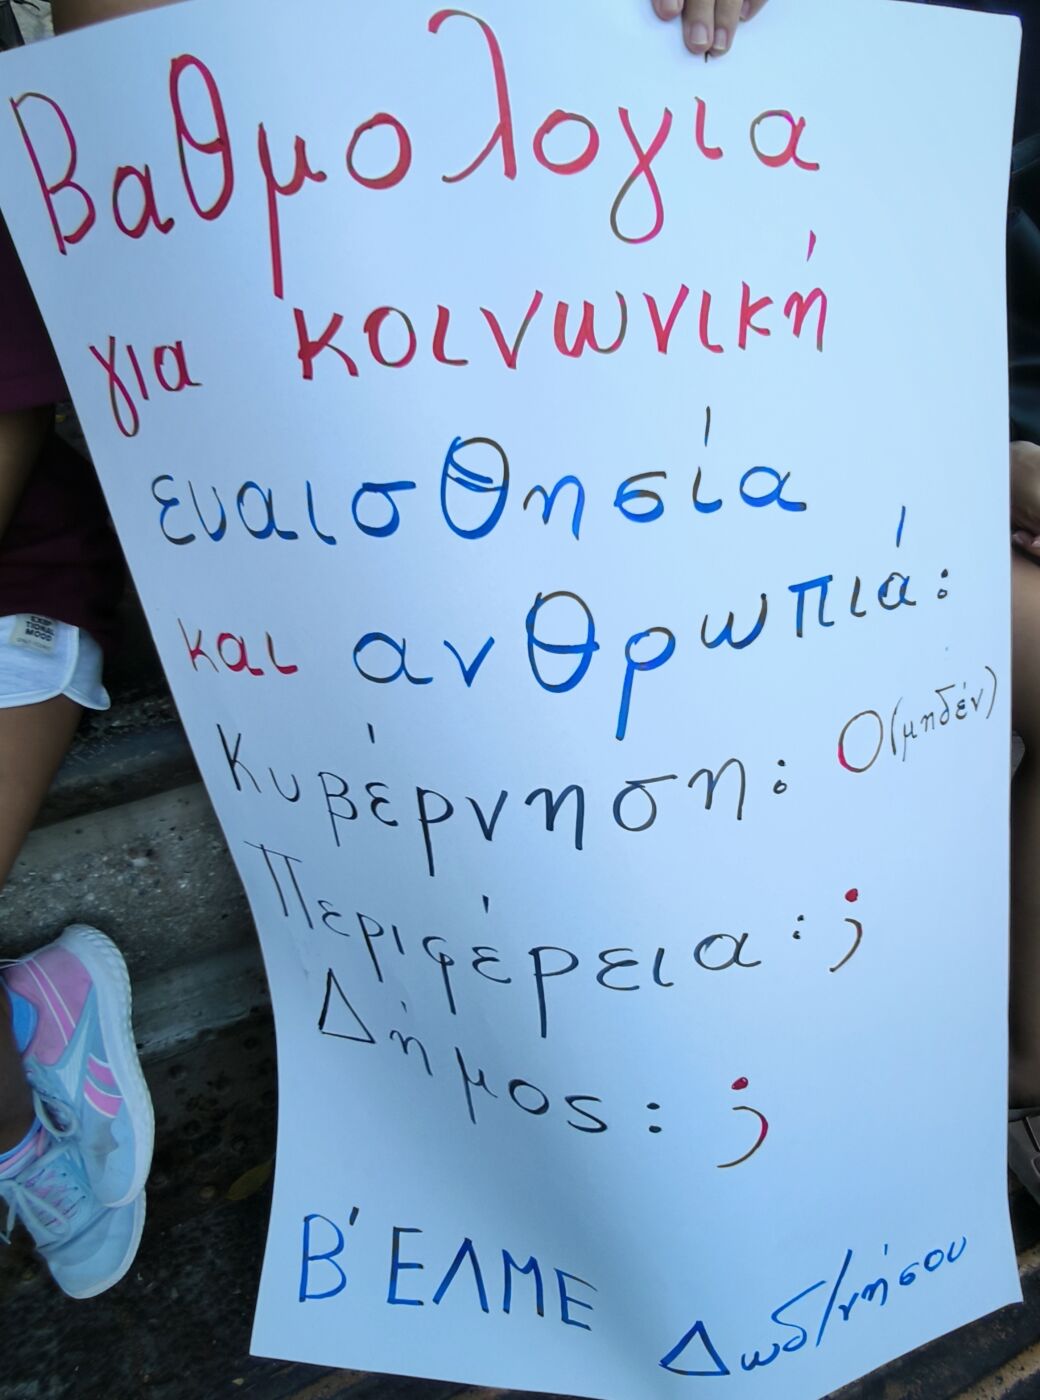 Βαθμολογια
για κοινωνική
ευαισθησία
και ανθρωπιά:
Κυβέρνηση: Ο(μηδέν)
Περιφέρεια: ;
Δήμος: ;
Β' ΕΛΜΕ Δωδ/νήσου